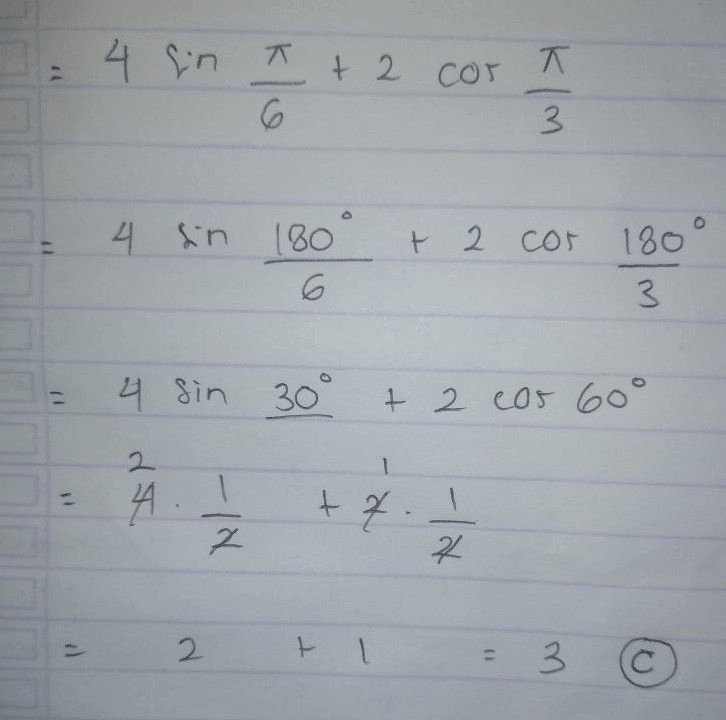 = 4 sin π/6 + 2 cos π/3
= 4 sin 180°/6 + 2 cos 180°/3
= 4 sin 30° + 2 cos 60°
2 1
= 4 · 1/2 + 2 · 1/2
= 2 + 1 = 3 C